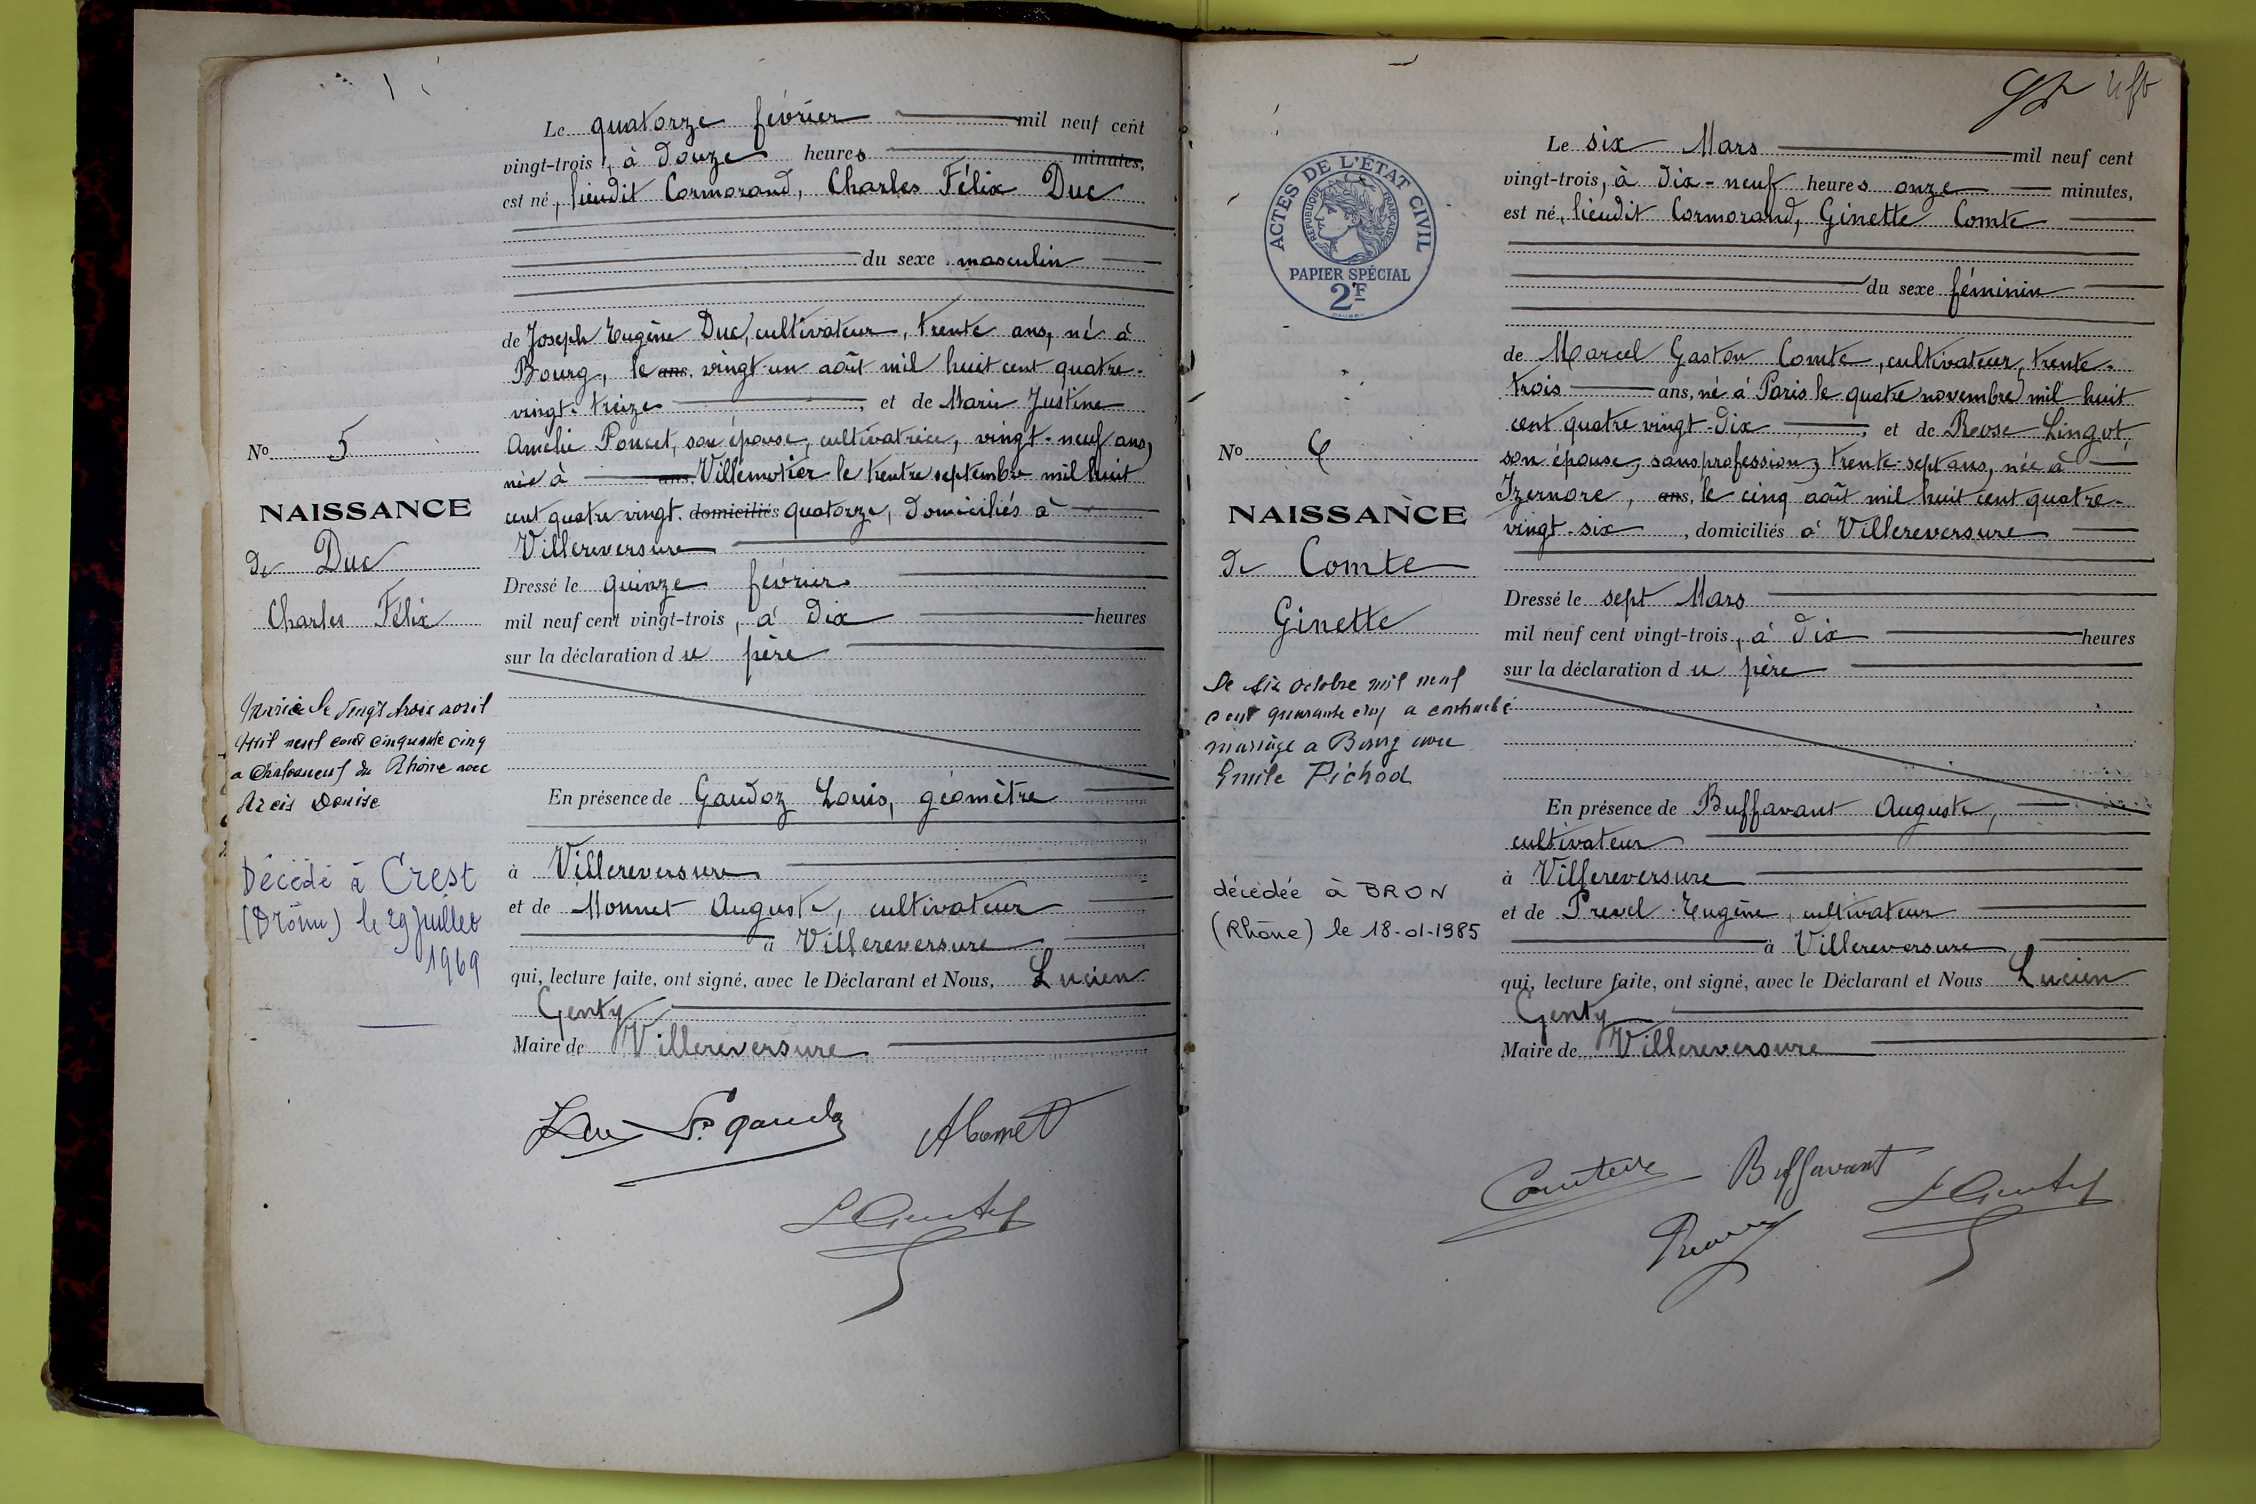 Le quatorze février mil neuf cent
vingt-trois, à douze heures minutes,
est né, lieudit Cormorand, Charles Félix Duc
du sexe masculin
de Joseph Eugène Duc, cultivateur, trente ans, né à
Bourg, le ans, vingt-un août mil huit cent quatre-
vingt-treize, et de Marie Justine
Amélie Poncet, son épouse, cultivatrice, vingt-neuf ans,
née à ans, Villemotier le trente septembre mil huit
cent quatre vingt domiciliés quatorze, domiciliés à
Villereversure
Dressé le quinze février
mil neuf cent vingt-trois, à dix heures
sur la déclaration du père
En présence de Gaudoz Louis, géomètre
à Villereversure
et de Monnet Auguste, cultivateur
à Villereversure
qui, lecture faite, ont signé, avec le Déclarant et Nous, Lucien
Genty
Maire de Villereversure
No 5
NAISSANCE
de Duc
Charles Félix
Marié le vingt trois avril
mil neuf cent cinquante cinq
a Chateauneuf du Rhône avec
Arcis Denise
Décédé à Crest
(Drôme) le 29 juillet
1969
ACTES DE L'ÉTAT CIVIL
RÉPUBLIQUE FRANÇAISE
PAPIER SPÉCIAL
2F
Le six Mars mil neuf cent
vingt-trois, à dix-neuf heures onze minutes,
est né, lieudit Cormorand, Ginette Comte
du sexe féminin
de Marcel Gaston Comte, cultivateur, trente-
trois ans, né à Paris le quatre novembre mil huit
cent quatre vingt-dix, et de Rose Lingot,
son épouse, sans profession, trente-sept ans, née à
Izernore, ans, le cinq août mil huit cent quatre-
vingt-six, domiciliés à Villereversure
Dressé le sept Mars
mil neuf cent vingt-trois, à dix heures
sur la déclaration du père
En présence de Buffavant Auguste,
cultivateur
à Villereversure
et de Prevel Eugène, cultivateur
à Villereversure
qui, lecture faite, ont signé, avec le Déclarant et Nous Lucien
Genty
Maire de Villereversure
Buffavant
No 6
NAISSANCE
de Comte
Ginette
Le six octobre mil neuf
cent quarante cinq a contracté
mariage a Bourg avec
Emile Pichod
décédée à BRON
(Rhône) le 18-01-1985